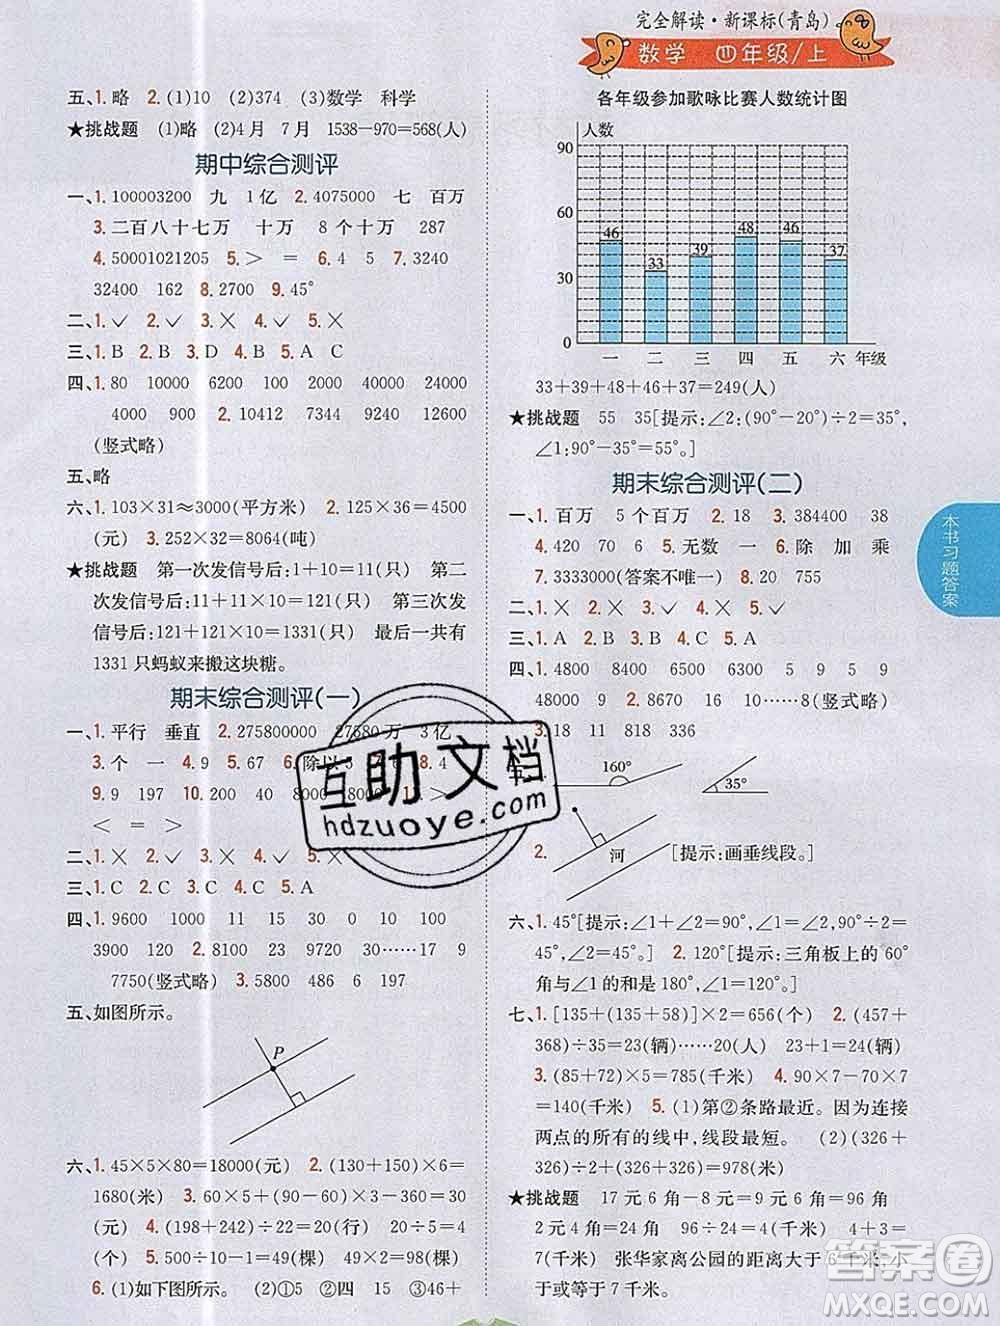 完全解读·新课标(青岛)
数学 四年级/上
五、1.略 2.(1)10 (2)374 (3)数学 科学
★挑战题 (1)略 (2)4月 7月 1538-970=568(人)
期中综合测评
一、1.100003200 九 1亿 2.4075000 七 百万
3.二百八十七万 十万 8个十万 287
4.50001021205 5.＞ ＝ 6.4 5 7.3240
32400 162 8.2700 9.45°
二、1.✓ 2.✓ 3.✕ 4.✓ 5.✕
三、1.B 2.B 3.D 4.B 5.A C
四、1.80 10000 6200 100 20000 24000
4000 900 2.10412 7344 9240 12600
(竖式略)
五、略
六、1.103×31≈3000(平方米) 2.125×36=4500
(元) 3.252×32=8064(吨)
★挑战题 第一次发信号后:1+10=11(只) 第二
次发信号后:11+11×10=121(只) 第三次发
信号后:121+121×10=1331(只) 最后一共有
1331只蚂蚁来搬这块糖。
期末综合测评(一)
一、1.平行 垂直 2.275800000 27580万 3亿
3.个 一 4.9 5.67 6.除以3 7.6 8.4
9.9 197 10.200 40 8000 18000 11.＞
＜ ＝ ＞
二、1.✕ 2.✓ 3.✕ 4.✓ 5.✓
三、1.C 2.C 3.C 4.B 5.C
四、1.9600 1000 11 15 30 0 16
3900 120 2.8100 23 9720 30……17 9
7750(竖式略) 3.5800 486 6 197
五、如图所示。
P
六、1.45×5×80=18000(元) 2.(130+150)×6=
1680(米) 3.9×50=450(元) 9×3-360=90
(元) 4.(198+242)÷22=20(行) 20÷5=4
(个) 5.500÷10-1=49(棵) 49×2=98(棵)
6.(1)如下图所示。 (2)①5 ②四 ③46+
各年级参加歌咏比赛人数统计图
人数
90
60
30
0
46 33 39 48 46 37
一 二 三 四 五 六 年级
33+39+48+46+37=249(人)
★挑战题 55 35[提示:∠2:(90°-20°)÷2=35°,
∠1:90°-35°=55°。]
期末综合测评(二)
一、1.百万 5个百万 2.18 3.384400 38
4.420 70 6 5.无数 一 6.除 加 乘
7.3333000(答案不唯一) 8.20 755
二、1.✕ 2.✕ 3.✓ 4.✕ 5.✓
三、1.A 2.B 3.C 4.A 5.B
四、1.4800 8400 6600 5 9 5 9
9000 5500 2.8670 9……8(竖式略)
3.18 11 818 336
160° 35°
2. 河 [提示:画垂线段。]
六、1.45°[提示:∠1+∠2=90°,∠1=90°÷2=
45°,∠2=45°。] 2.120°[提示:三角板上的60°
角与∠1的和是180°,∠1=180°-60°=120°。]
七、1.[135+(135+58)]×2=656(个) 2.(457+
368)÷35=23(辆)……20(人) 23+1=24(辆)
3.(85+72)×5=785(千米) 4.90×7-70×7
=140(千米) 5.(1)第②条路最近。因为连接
两点的所有的线中,线段最短。 (2)(326+
326)+326=978(米)
★挑战题 17元6角-8元=9元6角=96角
2元4角=24角 96÷24=4(千米) 4+3=
7(千米) 张华家离公园的距离大于6千米,小
于或等于7千米。
本书习题答案
互助文档
hdzuoye.com
答案圈
MXQE.COM